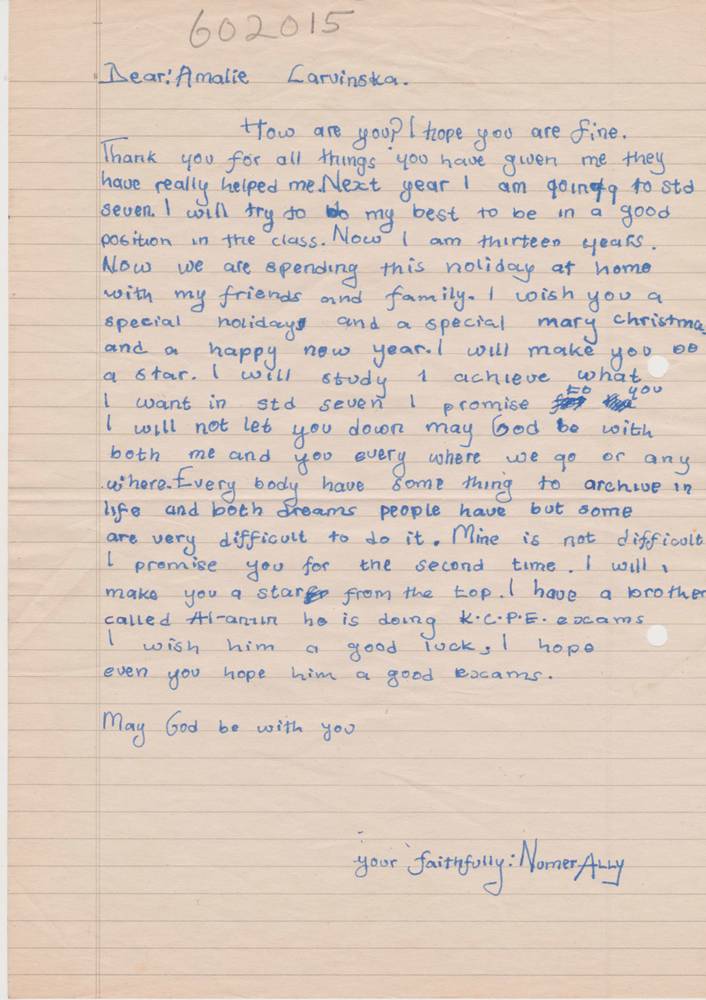 602015
Dear: Amalie Larvinska.
How are you? I hope you are fine.
Thank you for all things you have given me they
have really helped me. Next year I am going to std
seven. I will try to do my best to be in a good
position in the class. Now I am thirteen years.
Now we are spending this holiday at home
with my friends and family. I wish you a
special holidays and a special mary christma
and a happy new year. I will make you be
a star. I will study I achieve what
I want in std seven I promise to you
I will not let you down may God be with
both me and you every where we go or any
where. Every body have some thing to archive in
life and both dreams people have but some
are very difficult to do it. Mine is not difficult
I promise you for the second time. I will
make you a star from the top. I have a brother
called Al-amin he is doing K.C.P.E. excams
I wish him a good luck, I hope
even you hope him a good excams.
May God be with you
your faithfully: Nomer Ally